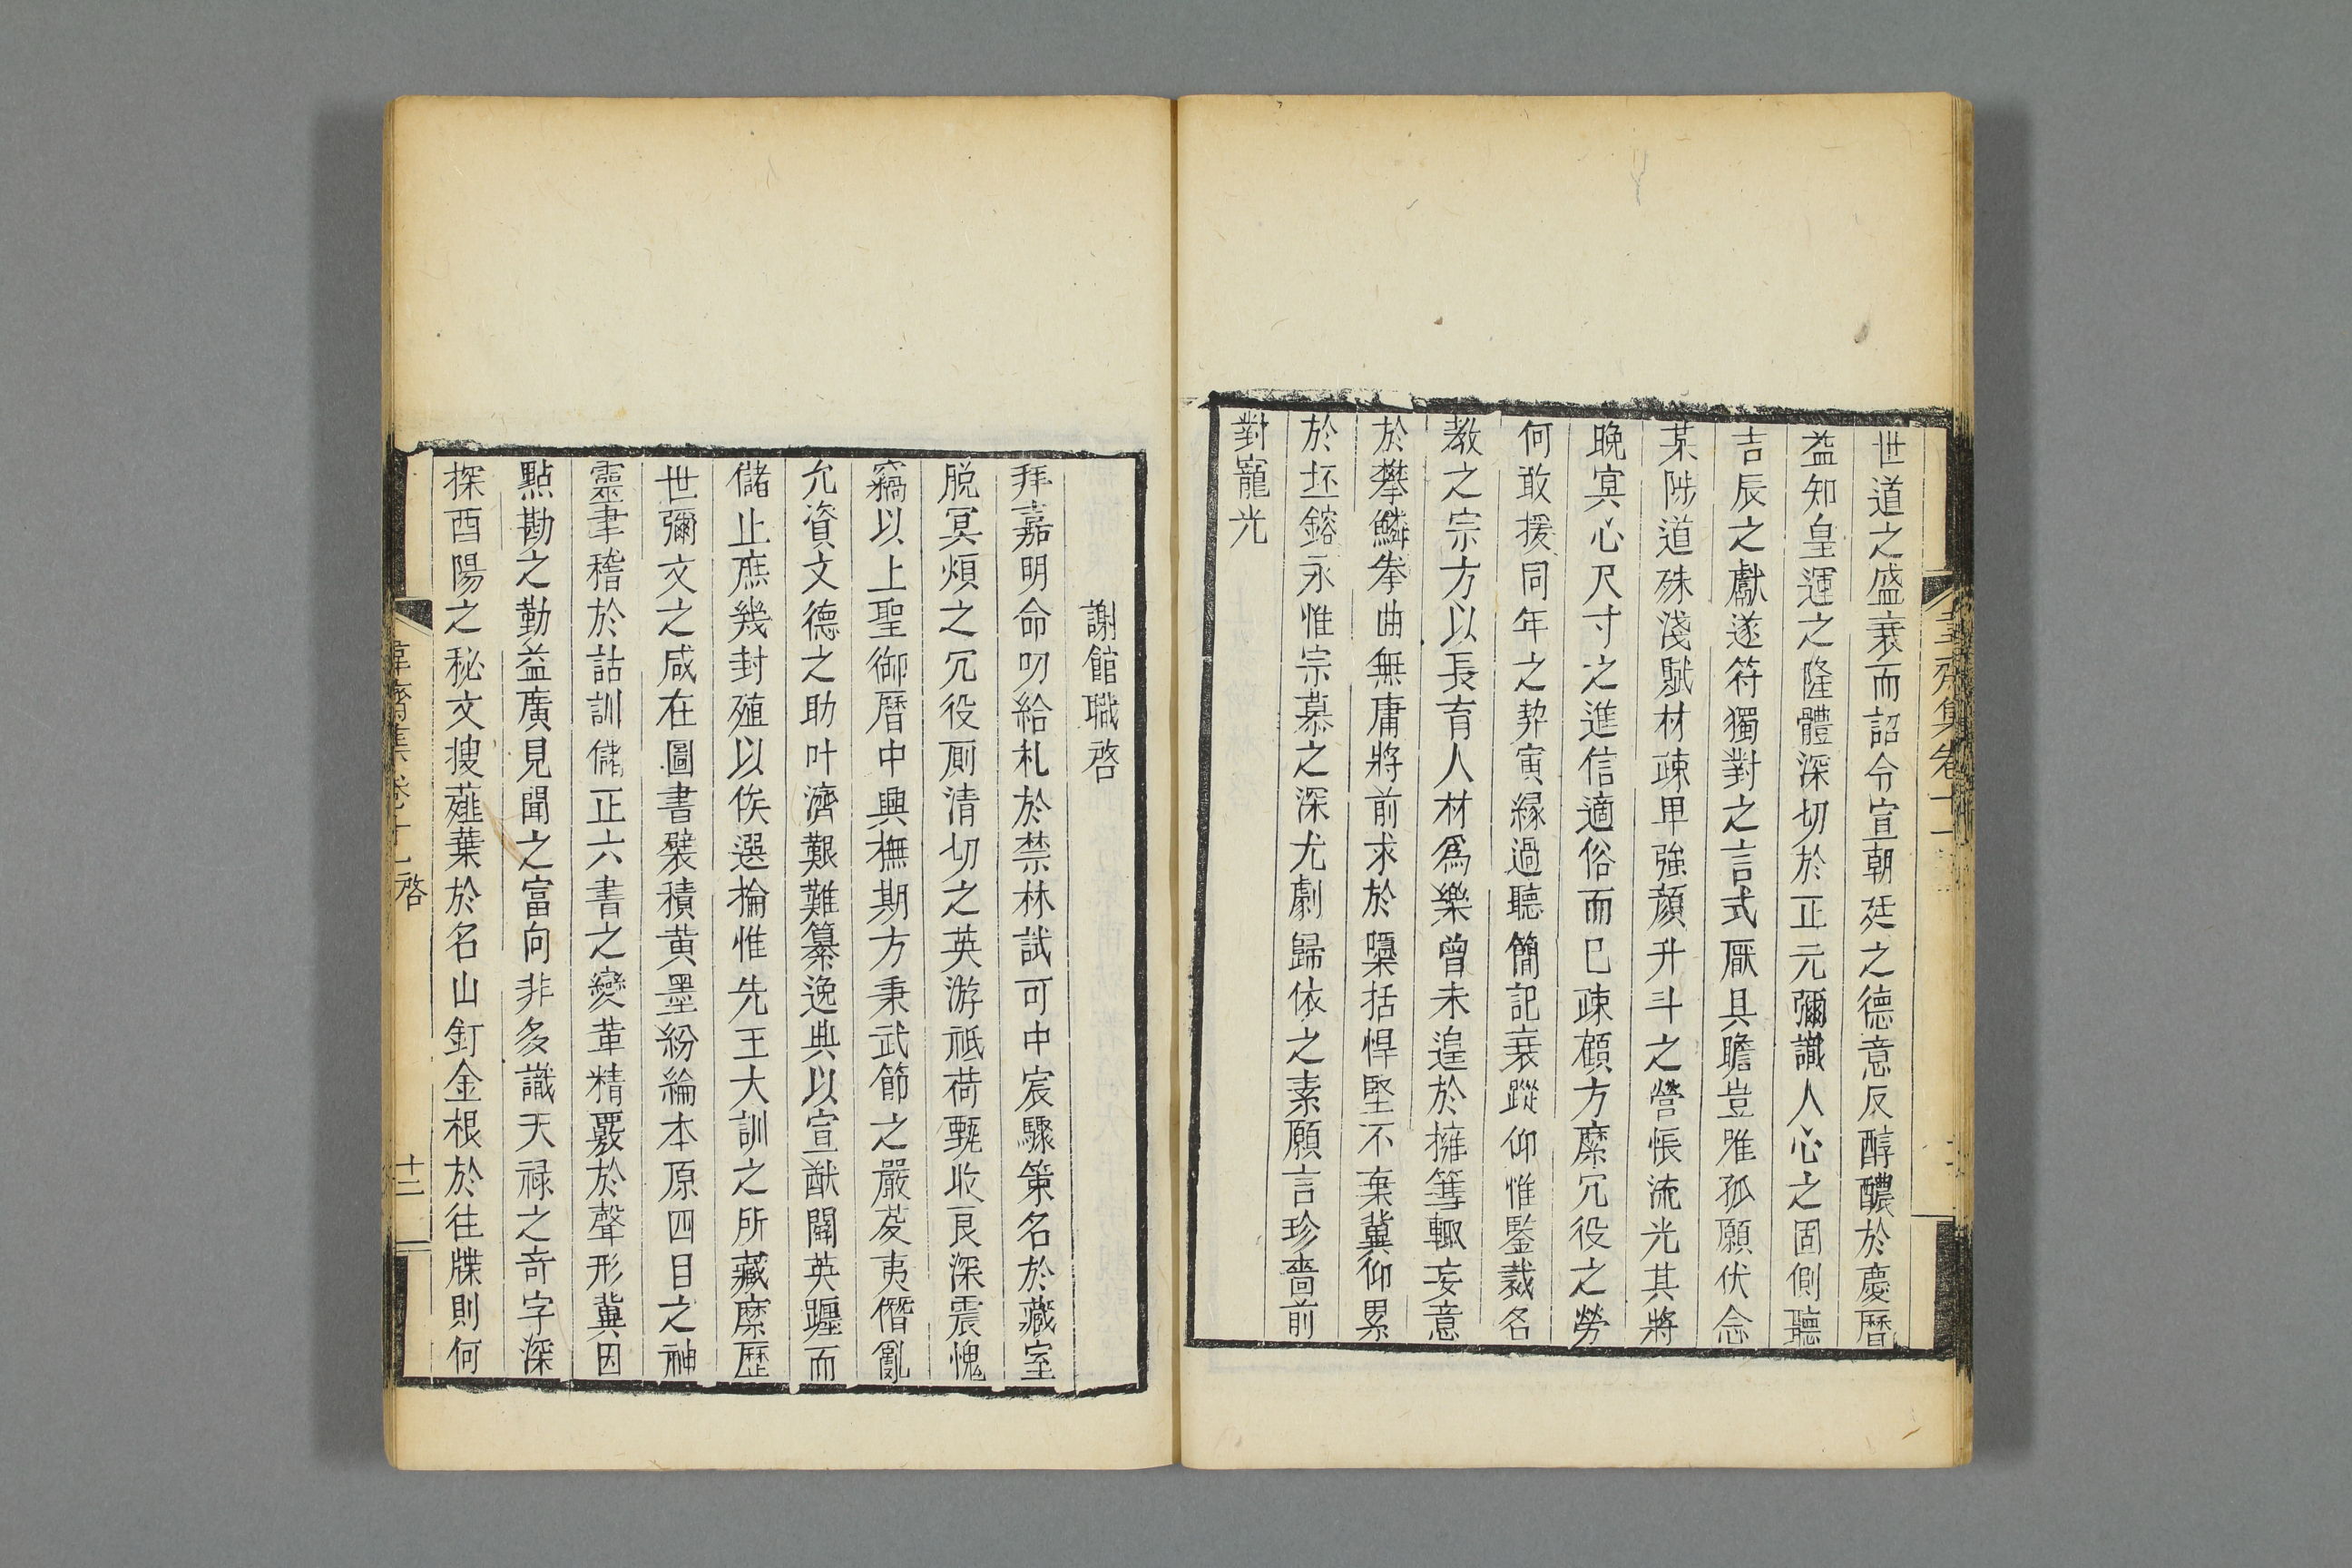 世道之盛衰而詔令宣朝廷之德意反醇醲於慶曆
益知皇運之隆體深切於正元彌識人心之固側聽
吉辰之獻遂符獨對之言式厭具瞻豈唯孤願伏念
某陟道殊淺賦材疎卑強顔升斗之營悵流光其將
晚冥心尺寸之進信適俗而已疎顧方縻冗役之勞
何敢援同年之契寅縁過聽簡記衰蹤仰惟鑒裁名
教之宗方以長育人材爲樂曾未遑於擁篲輙妄意
於攀鱗拳曲無庸將前求於檃括悍堅不棄冀仰累
於坯鎔永惟宗慕之深尤劇歸依之素願言珍嗇前
對寵光
韋齋集卷十一
謝館職啓
拜嘉明命叨給札於禁林試可中宸驟策名於藏室
脱冥煩之冗役厠清切之英游祗荷甄收良深震愧
竊以上聖御曆中興撫期方秉武節之嚴芟夷僭亂
允資文德之助叶濟艱難纂逸典以宣猷闢英躔而
儲止庶幾封殖以俟選掄惟先王大訓之所藏縻歷
世彌文之咸在圖書襞積黄墨紛綸本原四目之神
靈聿稽於詁訓儲正六書之變革精覈於聲形冀因
點勘之勤益廣見聞之富向非多識天禄之奇字深
探酉陽之秘文搜薤葉於名山釘金根於往牒則何
韋齋集卷十一 啓 十二